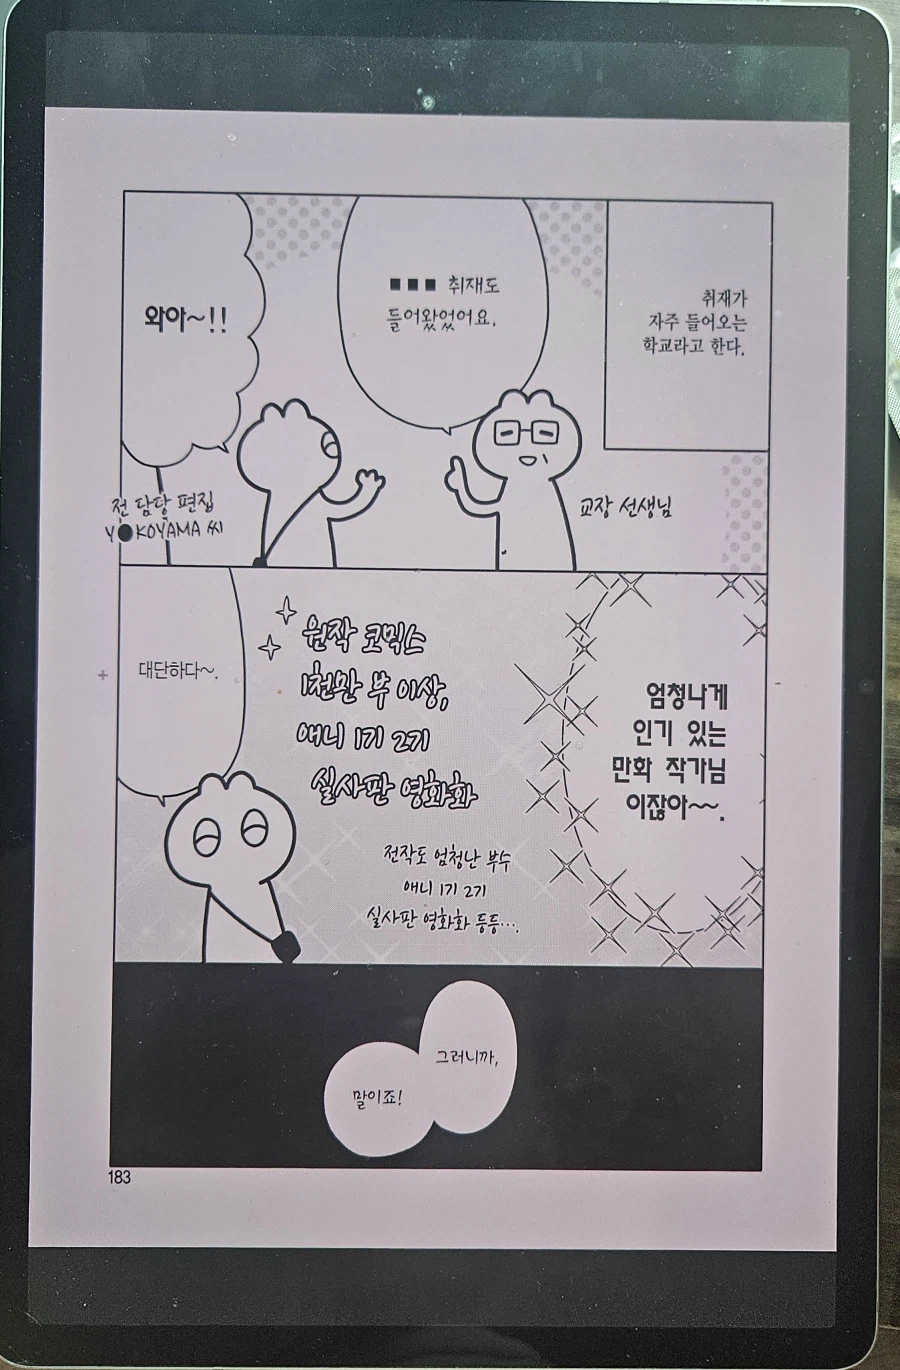 취재가
자주 들어오는
학교라고 한다.
■■■ 취재도
들어왔었어요.
와아~!!
교장 선생님
전 담당 편집
Y●KOYAMA 씨
엄청나게
인기 있는
만화 작가님
이잖아~~.
원작 코믹스
1천만 부 이상,
애니 1기 2기
실사판 영화화
전작도 엄청난 부수
애니 1기 2기
실사판 영화화 등등….
대단하다~.
그러니까,
말이죠!
183